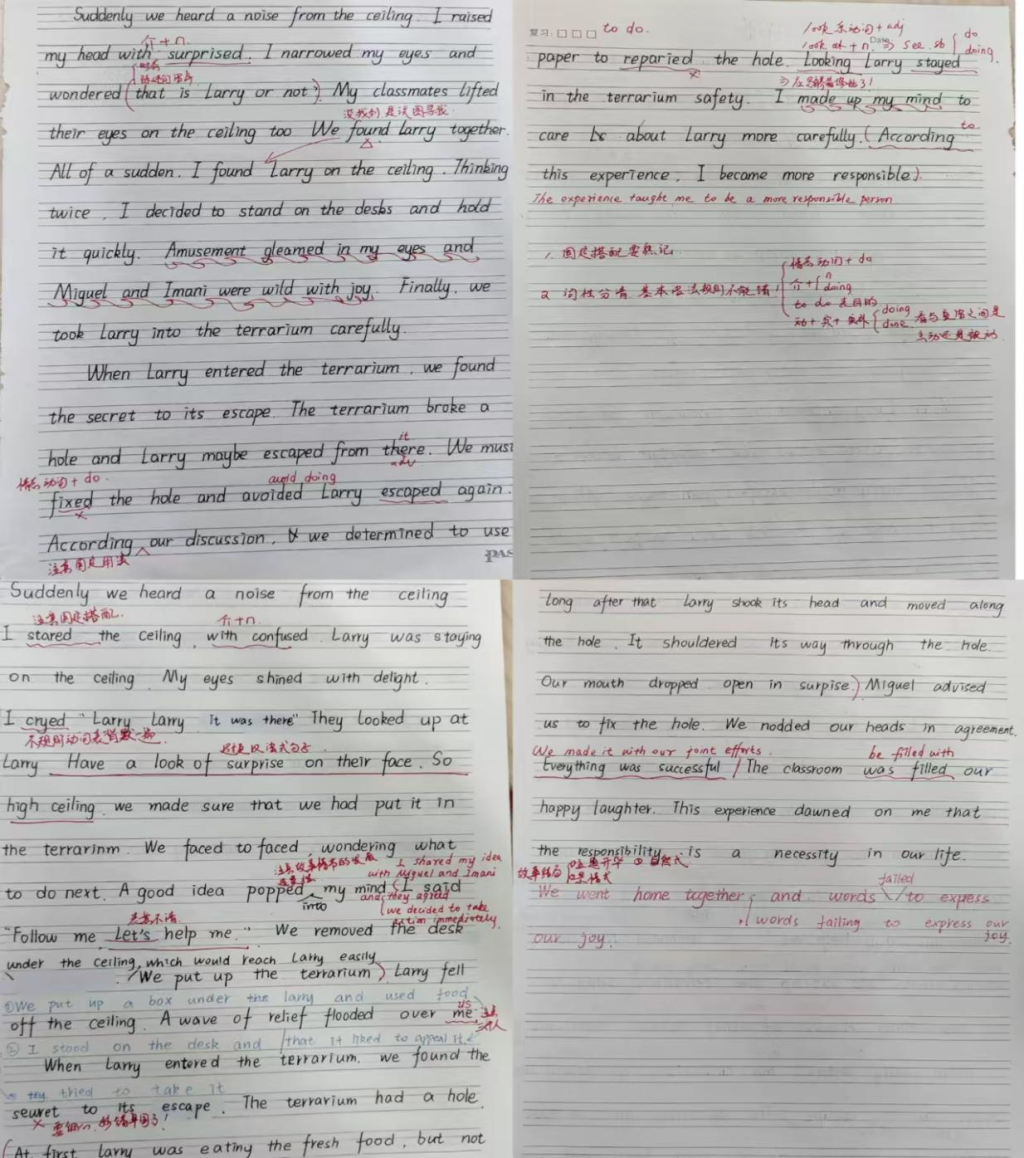 Suddenly we heard a noise from the ceiling. I raised
介+n.
my head with surprised. I narrowed my eyes and
wondered (that is Larry or not). My classmates lifted
their eyes on the ceiling too. We found Larry together.
All of a sudden. I found Larry on the ceiling. Thinking
twice, I decided to stand on the desbs and hold
it quickly. Amusement gleamed in my eyes and
Miguel and Imani were wild with joy. Finally, we
took Larry into the terrarium carefully.
When Larry entered the terrarium, we found
the secret to its escape. The terrarium broke a
it
hole and Larry maybe escaped from there. We must
adv
情态动词+do. avoid doing
fixed the hole and avoided Larry escaped again.
According our discussion, we determined to use
注意固定用法
PAS
复习: □ □ □ to do.
look 系动词+adj
look at + n. ⇒ see sb do
doing
Date
paper to reparied the hole. Looking Larry stayed
in the terrarium safety. I made up my mind to
care about Larry more carefully. (According
to
this experience, I became more responsible).
The experience taught me to be a more responsible person
1. 固定搭配要熟记
2 词性分清, 基本语法规则不能错
情态动词+do
介+ n
doing
to do 表目的
doing
done
看与主语之间是
主动还是被动
Suddenly we heard a noise from the ceiling
注意固定搭配. 介+n.
I stared the ceiling, with confused. Larry was staying
on the ceiling. My eyes shined with delight.
I cryed "Larry Larry it was there" They looked up at
不规则动词表背默一遍
Larry. Have a look of surprise on their face. So
high ceiling, we made sure that we had put it in
the terrarinm. We faced to faced, wondering what
I shared my idea
with Miguel and Imani
to do next. A good idea popped my mind (I said
into
and they agreed
we decided to take
action immediately.
意思不清
"Follow me Let's help me." We removed the desk
under the ceiling, which would reach Larry easily
We put up the terrarium) Larry fell
①We put up a box under the larry and used food
off the ceiling. A wave of relief flooded over me
us
② I stood on the desk and that it liked to appeal it.
When Larry entered the terrarium. we found the
try tried to take it
seuret to its escape. The terrarium had a hole.
(At first Larry was eating the fresh food, but not
long after that Larry shook its head and moved along
the hole. It shouldered its way through the hole.
Our mouth dropped open in surpise.) Miguel advised
us to fix the hole. We nodded our heads in agreement.
We made it with our joint efforts. be filled with
Everything was successful / The classroom was filled our
happy laughter. This experience dawned on me that
the responsibility is a necessity in our life.
failed
We went home together, and words to expess
words failing to express our
joy.
our joy.